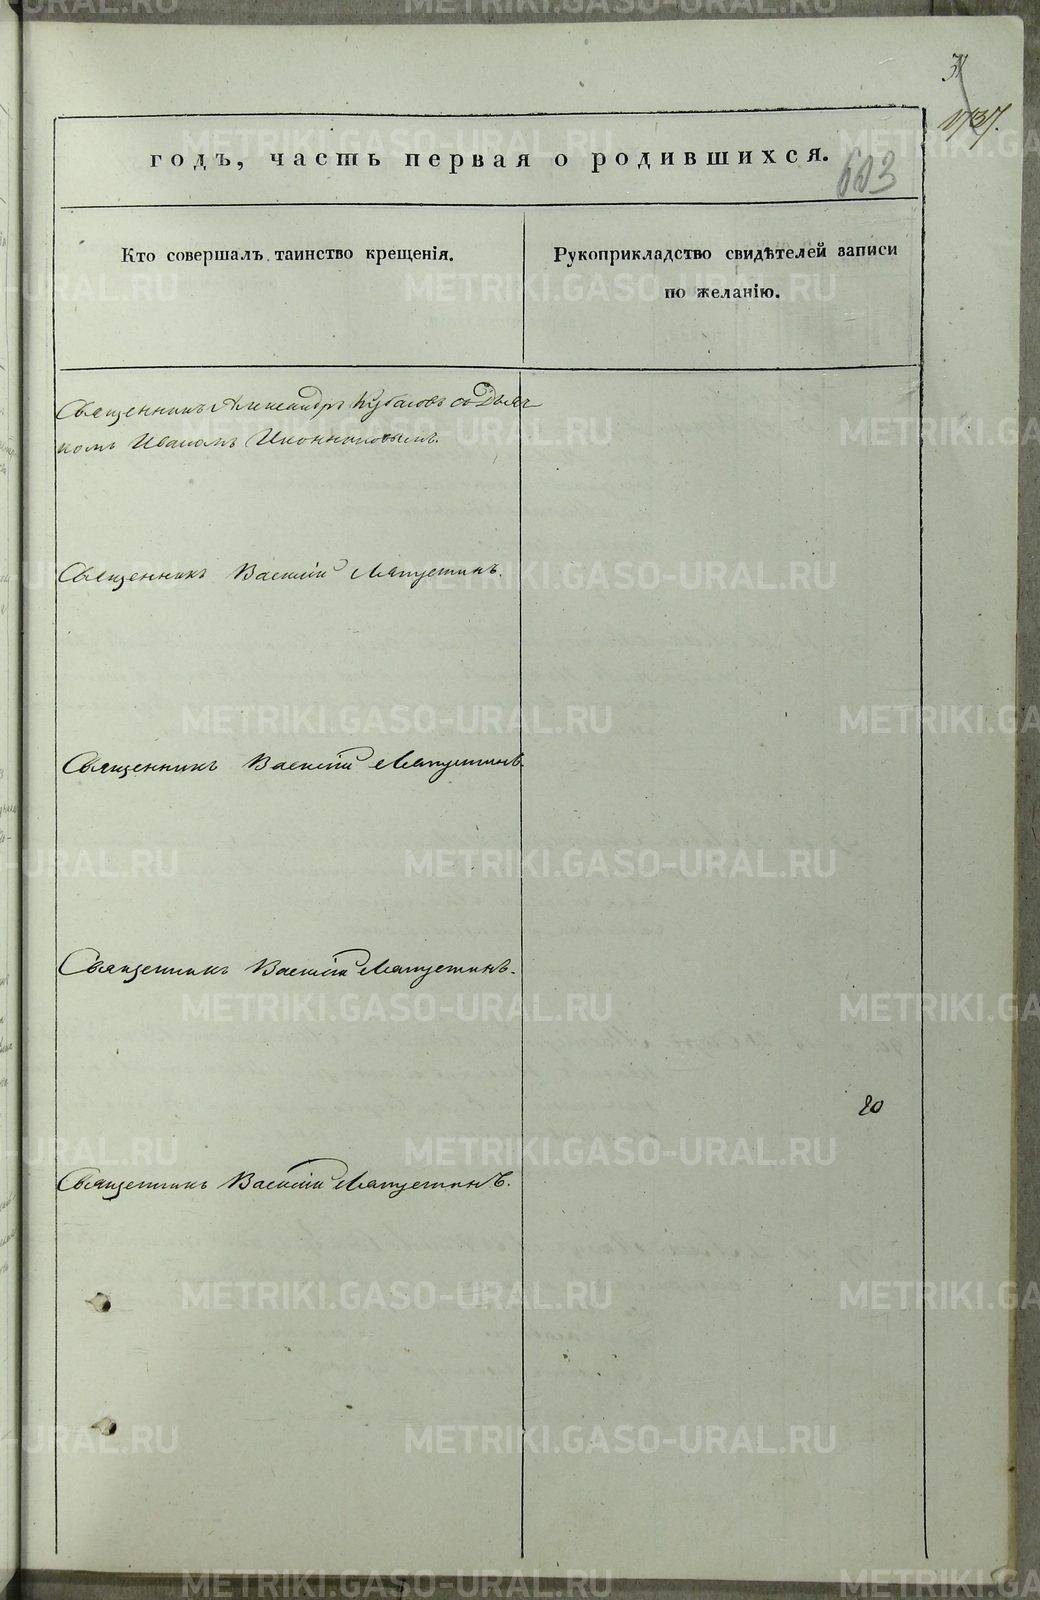 годъ, часть первая о родившихся.
603
Кто совершалъ таинство крещенія.
Рукоприкладство свидѣтелей записи
по желанію.
Священникъ Александръ Кубасовъ съ Дьяч
комъ Иваномъ Иконниковымъ.
Священникъ Василій Ляпустинъ.
Священникъ Василій Ляпустинъ.
Священникъ Василій Ляпустинъ.
20
Священникъ Василій Ляпустинъ.
METRIKI.GASO-URAL.RU